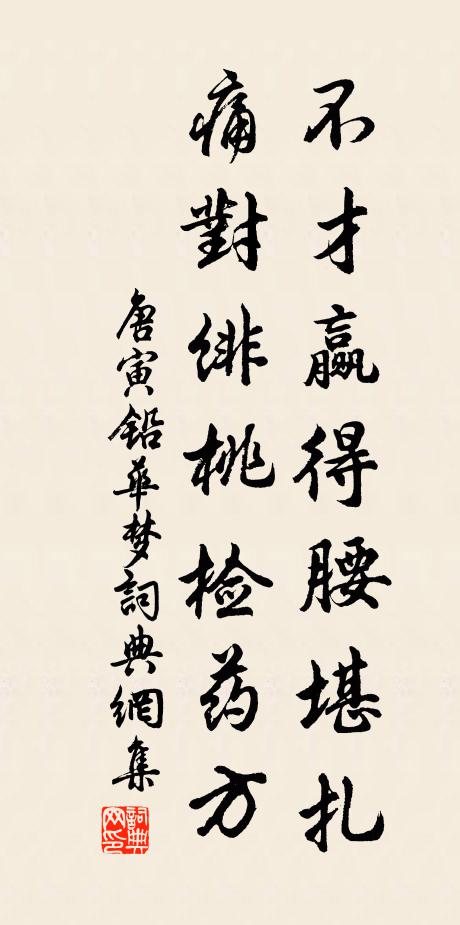 不才赢得腰堪扎
痛對緋桃检药方
唐寅铅華梦詞典網集
詞典網印